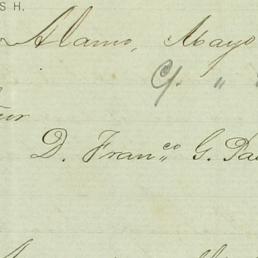 S H.
Alamo, Mayo
C/. "
D. Fran.co G. Pa